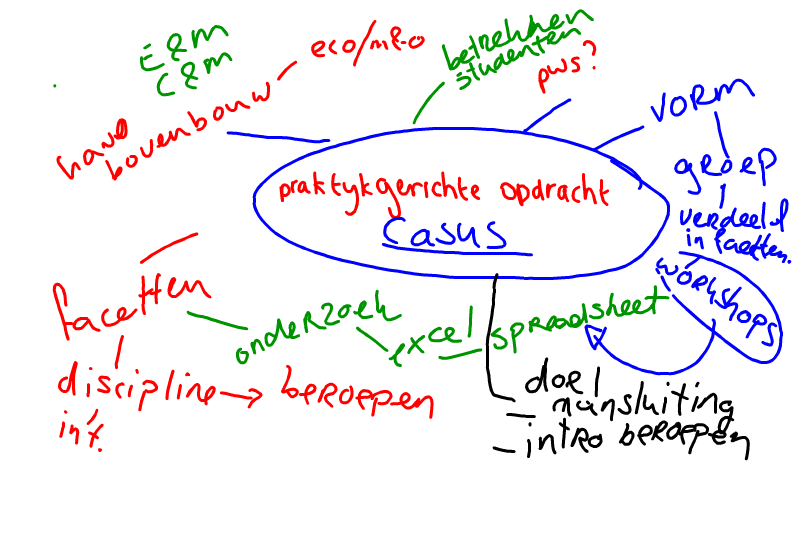 E&M
C&M
eco/m&o
havo
bovenbouw
betrekken
studenten
pws?
VORM
groep
verdeeld
in facetten.
workshops
praktykgerichte opdracht
Casus
facetten
onderzoek
excel spreadsheet
discipline → beroepen
int.
doel
- aansluiting
- intro beroepen